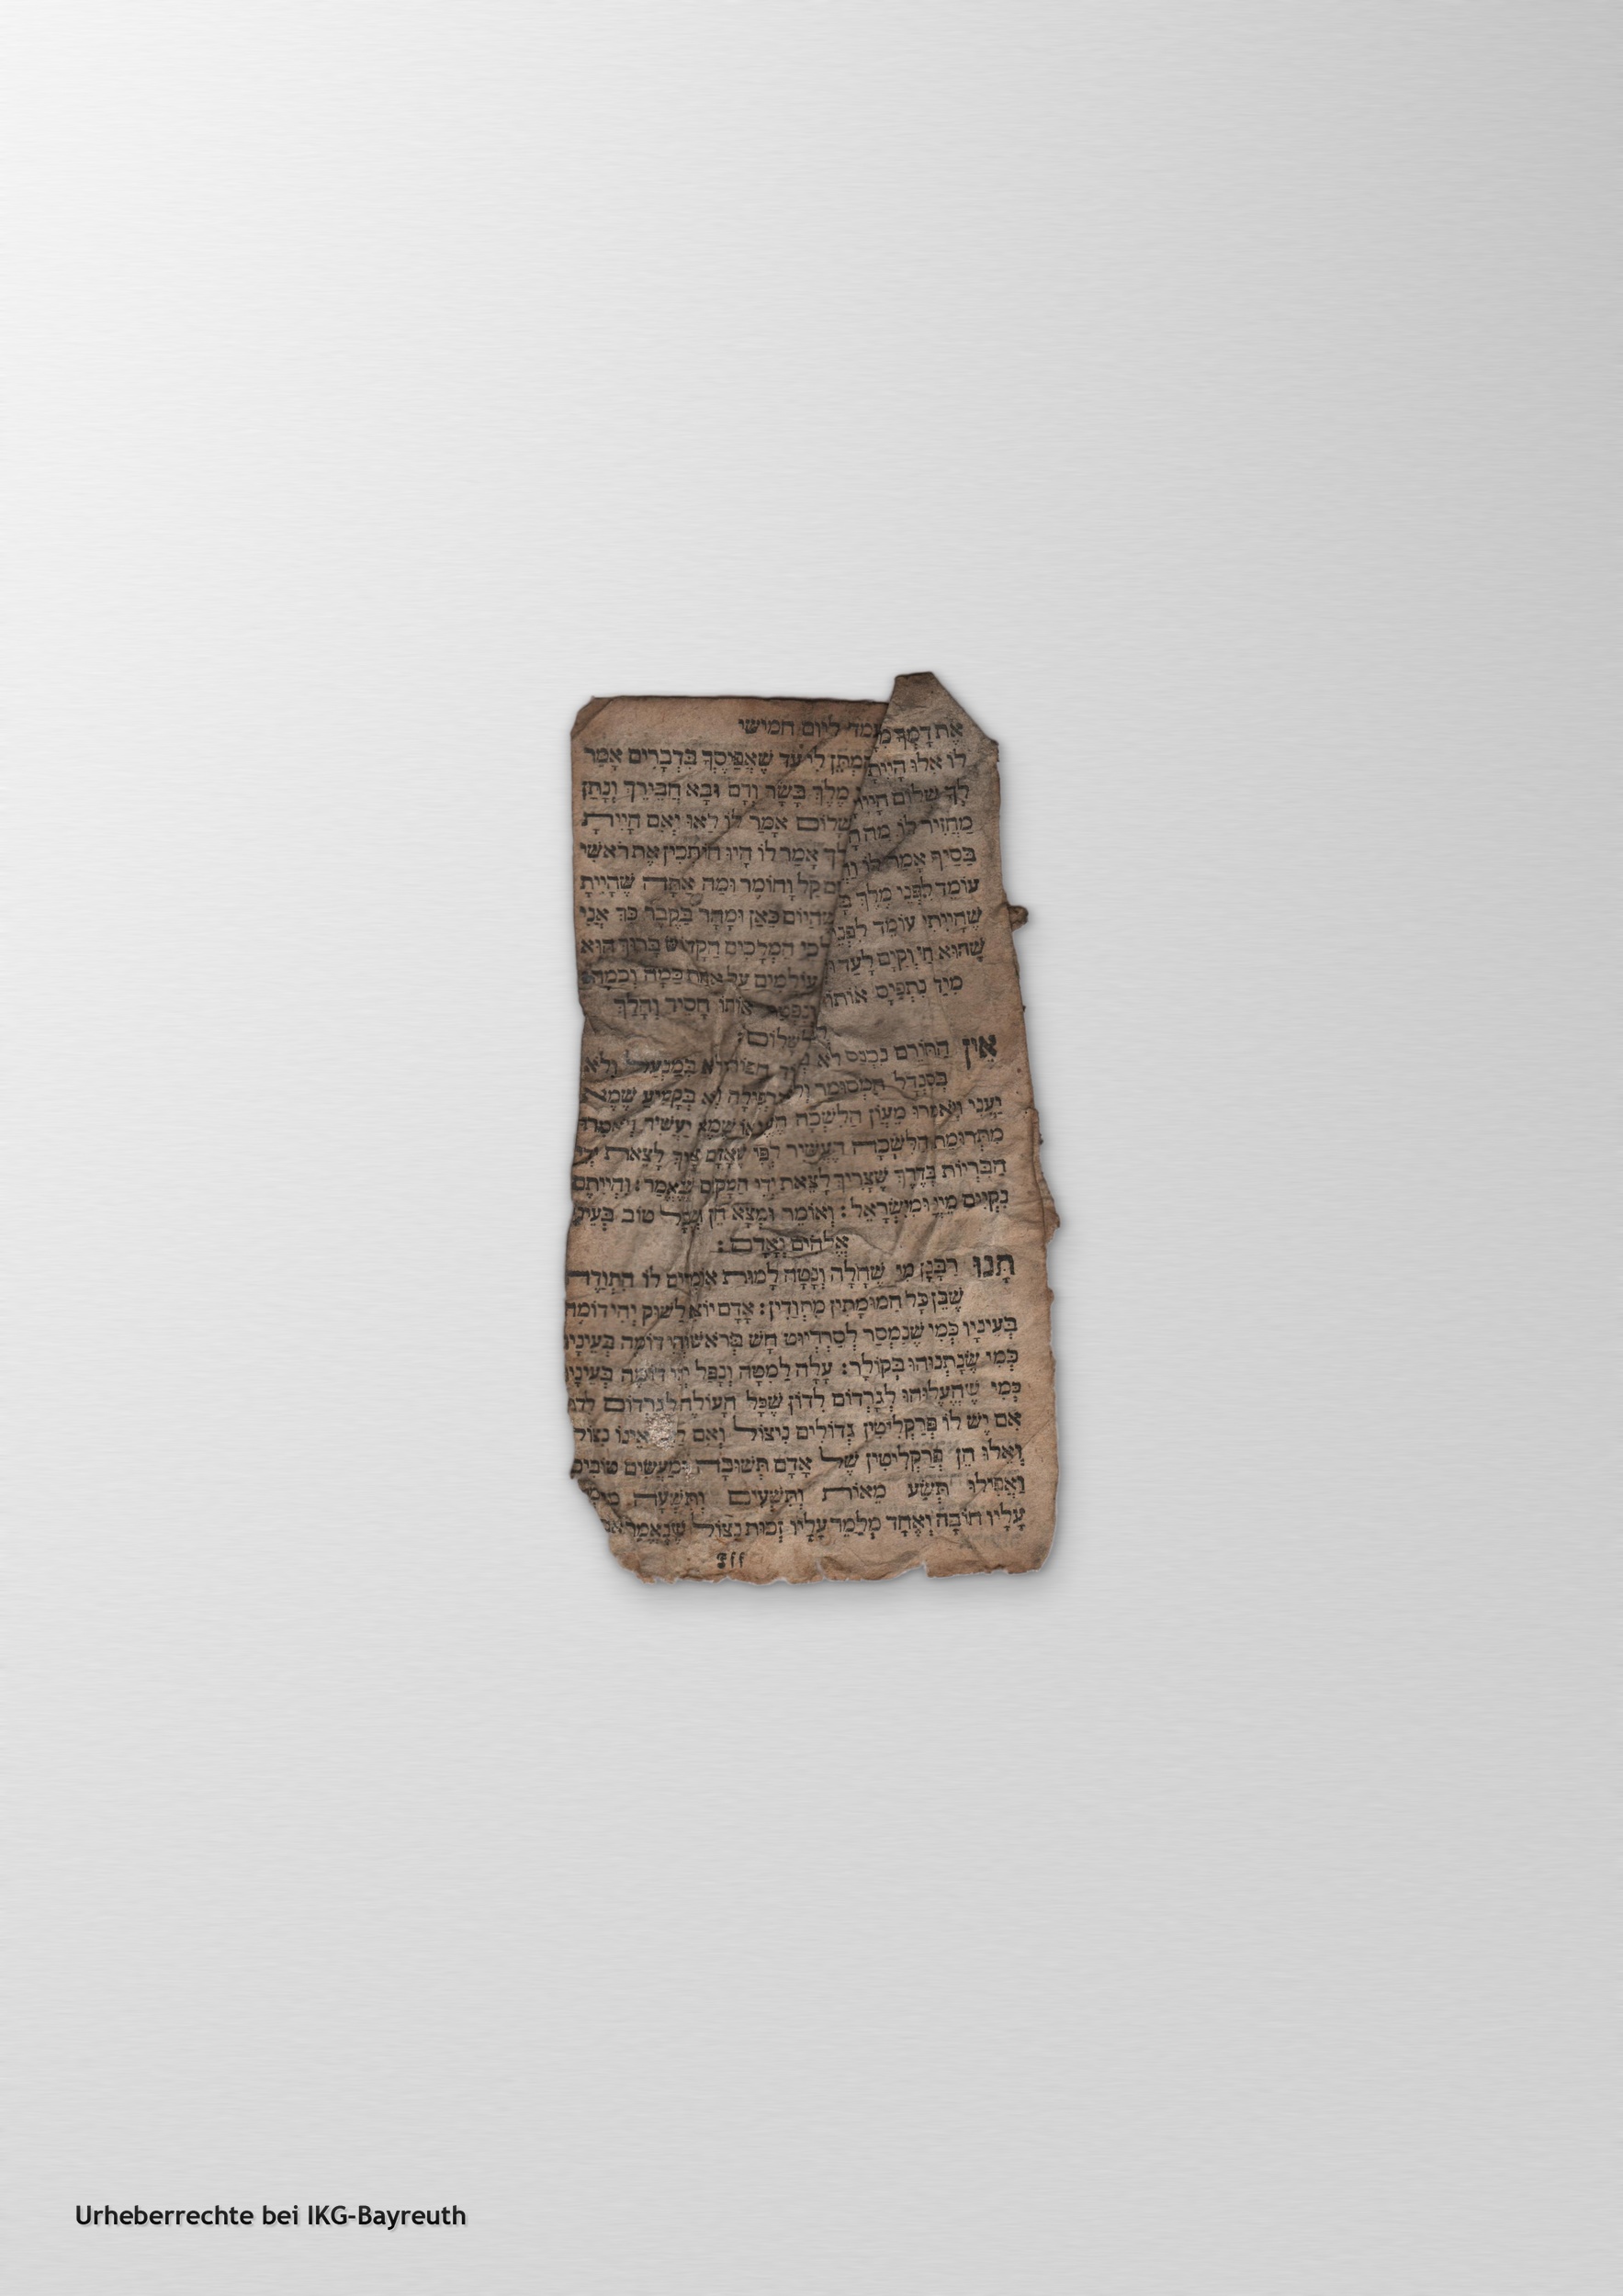 מעמד ליום חמישי
את דמך
לו אלו היית המתן לי עד שאפייסך בדברים אמר
לך שלום היית מלך בשר ודם ובא חבירך ונתן
מחזיר לו שלום אמר לו לאו ואם היית
בסיף אמר לו היו חותכין את ראשי
עומד לפני מלך קל וחומר ומה אתה שהיית
שהייתי עומד לפני שהיום כאן ומחר בקבר כך אני
שהוא חי וקים לעד מלכי המלכים הקדוש ברוך הוא
עולמים על אחת כמה וכמה
מיד נתפיס אותו ונפטר אותו חסיד והלך
לשלום:
אין התורם נכנס לא ולא במנעול ולא
בסנדל המסומר ולא בתפילה ולא בקמיע שמא
יעני ויאמרו מעון הלשכה העני או שמא יעשיר ויאמרו
מתרומת הלשכה העשיר לפי שאדם צריך לצאת ידי
הבריות בדרך שצריך לצאת ידי המקום שנאמר: והייתם
נקיים מיי ומישראל: ואומר ומצא חן ושכל טוב בעיני
אלהים ואדם:
תָּנוּ רַבָּנָן מי שחלה ונטה למות אומרים לו התודה
שכן כל המומתין מתודין: אדם יוצא לשוק יהי דומה
בעיניו כמי שנמסר לסרדיוט חש בראשו יהי דומה בעיניו
כמי שנתנוהו בקולר: עלה למטה ונפל יהי דומה בעיניו
כמי שהעלוהו לגרדום לדון שכל העולה לגרדום לדון
אם יש לו פרקליטין גדולים ניצול ואם לאו אינו נצול
ואלו הן פרקליטין של אדם תשובה ומעשים טובים
ואפילו תשע מאות ותשעים ותשעה
עליו חובה ואחד מלמד עליו זכות נצול שנאמר אם